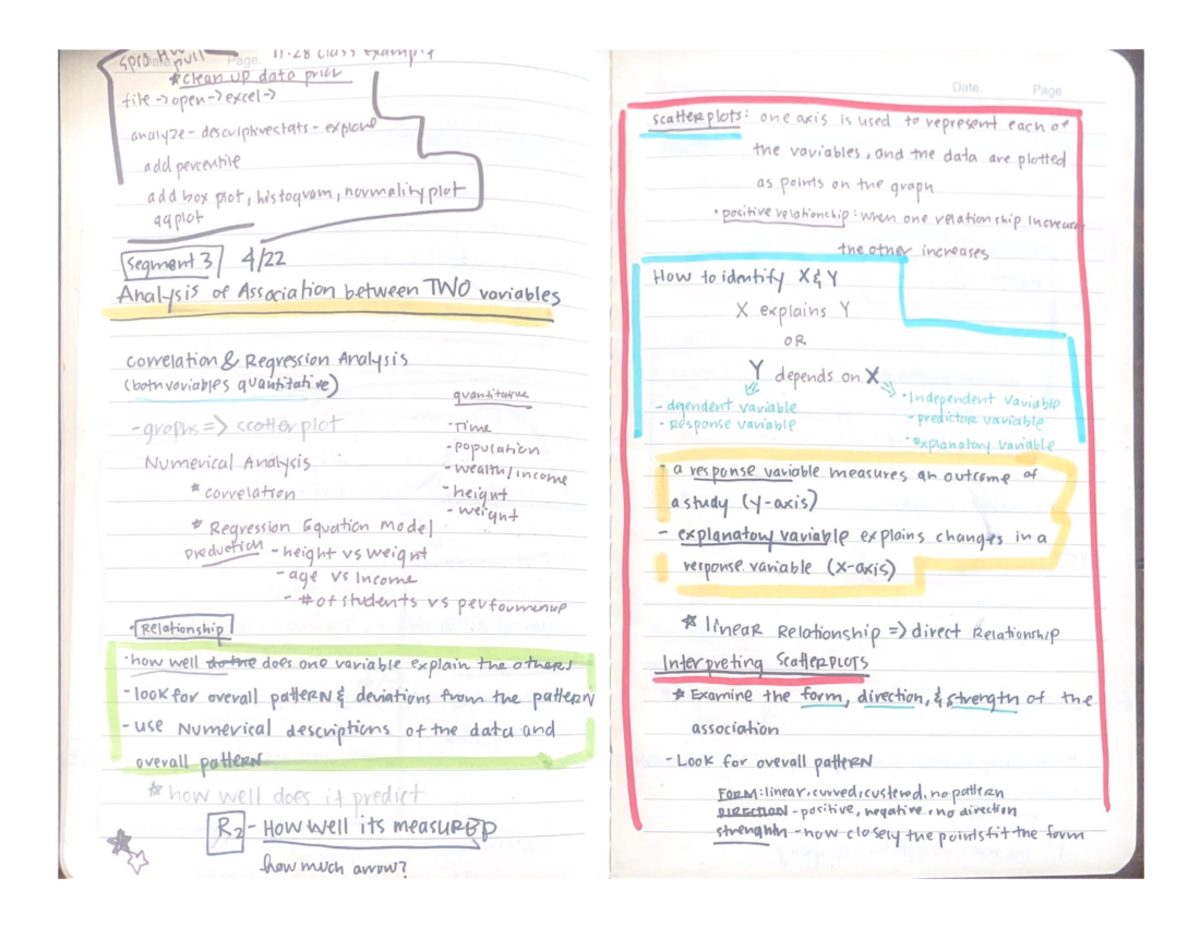 Page. 11.28 class example
pull
*clean up data prior
file → open → excel →
analyze - descriptivestats - explore
add percentile
add box plot, histogram, normality plot
qqplot
Segment 3 4/22
Analysis of Association between TWO variables
correlation & Regression Analysis
(both variables quantitative)
quantitative
-graphs => scatterplot
-Time
-population
Numerical Analysis
-wealth/income
*correlation
-height
-weight
* Regression Equation Model
production - height vs weight
- age vs Income
- # of students vs performance
• Relationship
• how well do the does one variable explain the others
- look for overall patterN & deviations from the pattern
- use Numerical descriptions of the data and
overall patterN
* how well does it predict
R2 - How well its measured
how much arrow?
Date. Page
scatterplots: one axis is used to represent each of
the variables, and the data are plotted
as points on the graph
• positive relationship: when one relationship increases
the other increases
How to identify X & Y
X explains Y
OR
Y depends on X
- dependent variable
- Response variable
• Independent variable
- predictor variable
• explanatory variable
- a response variable measures an outcome of
a study (y-axis)
- explanatory variable explains changes in a
response variable (x-axis)
* linear Relationship => direct Relationship
Interpreting ScatterPLOTS
* Examine the form, direction, & strength of the
association
- Look for overall patterN
FORM: linear, curved, custered, no pattern
DIRECTION - positive, negative, no direction
strenghth - how closely the points fit the form